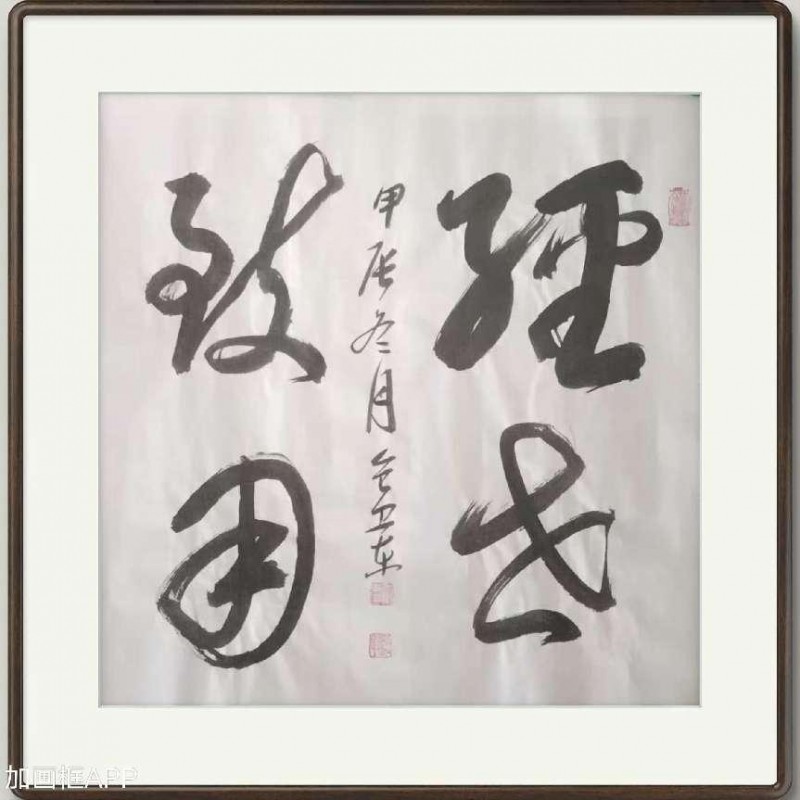 经世
致用
甲辰冬月
卫东
加画框APP